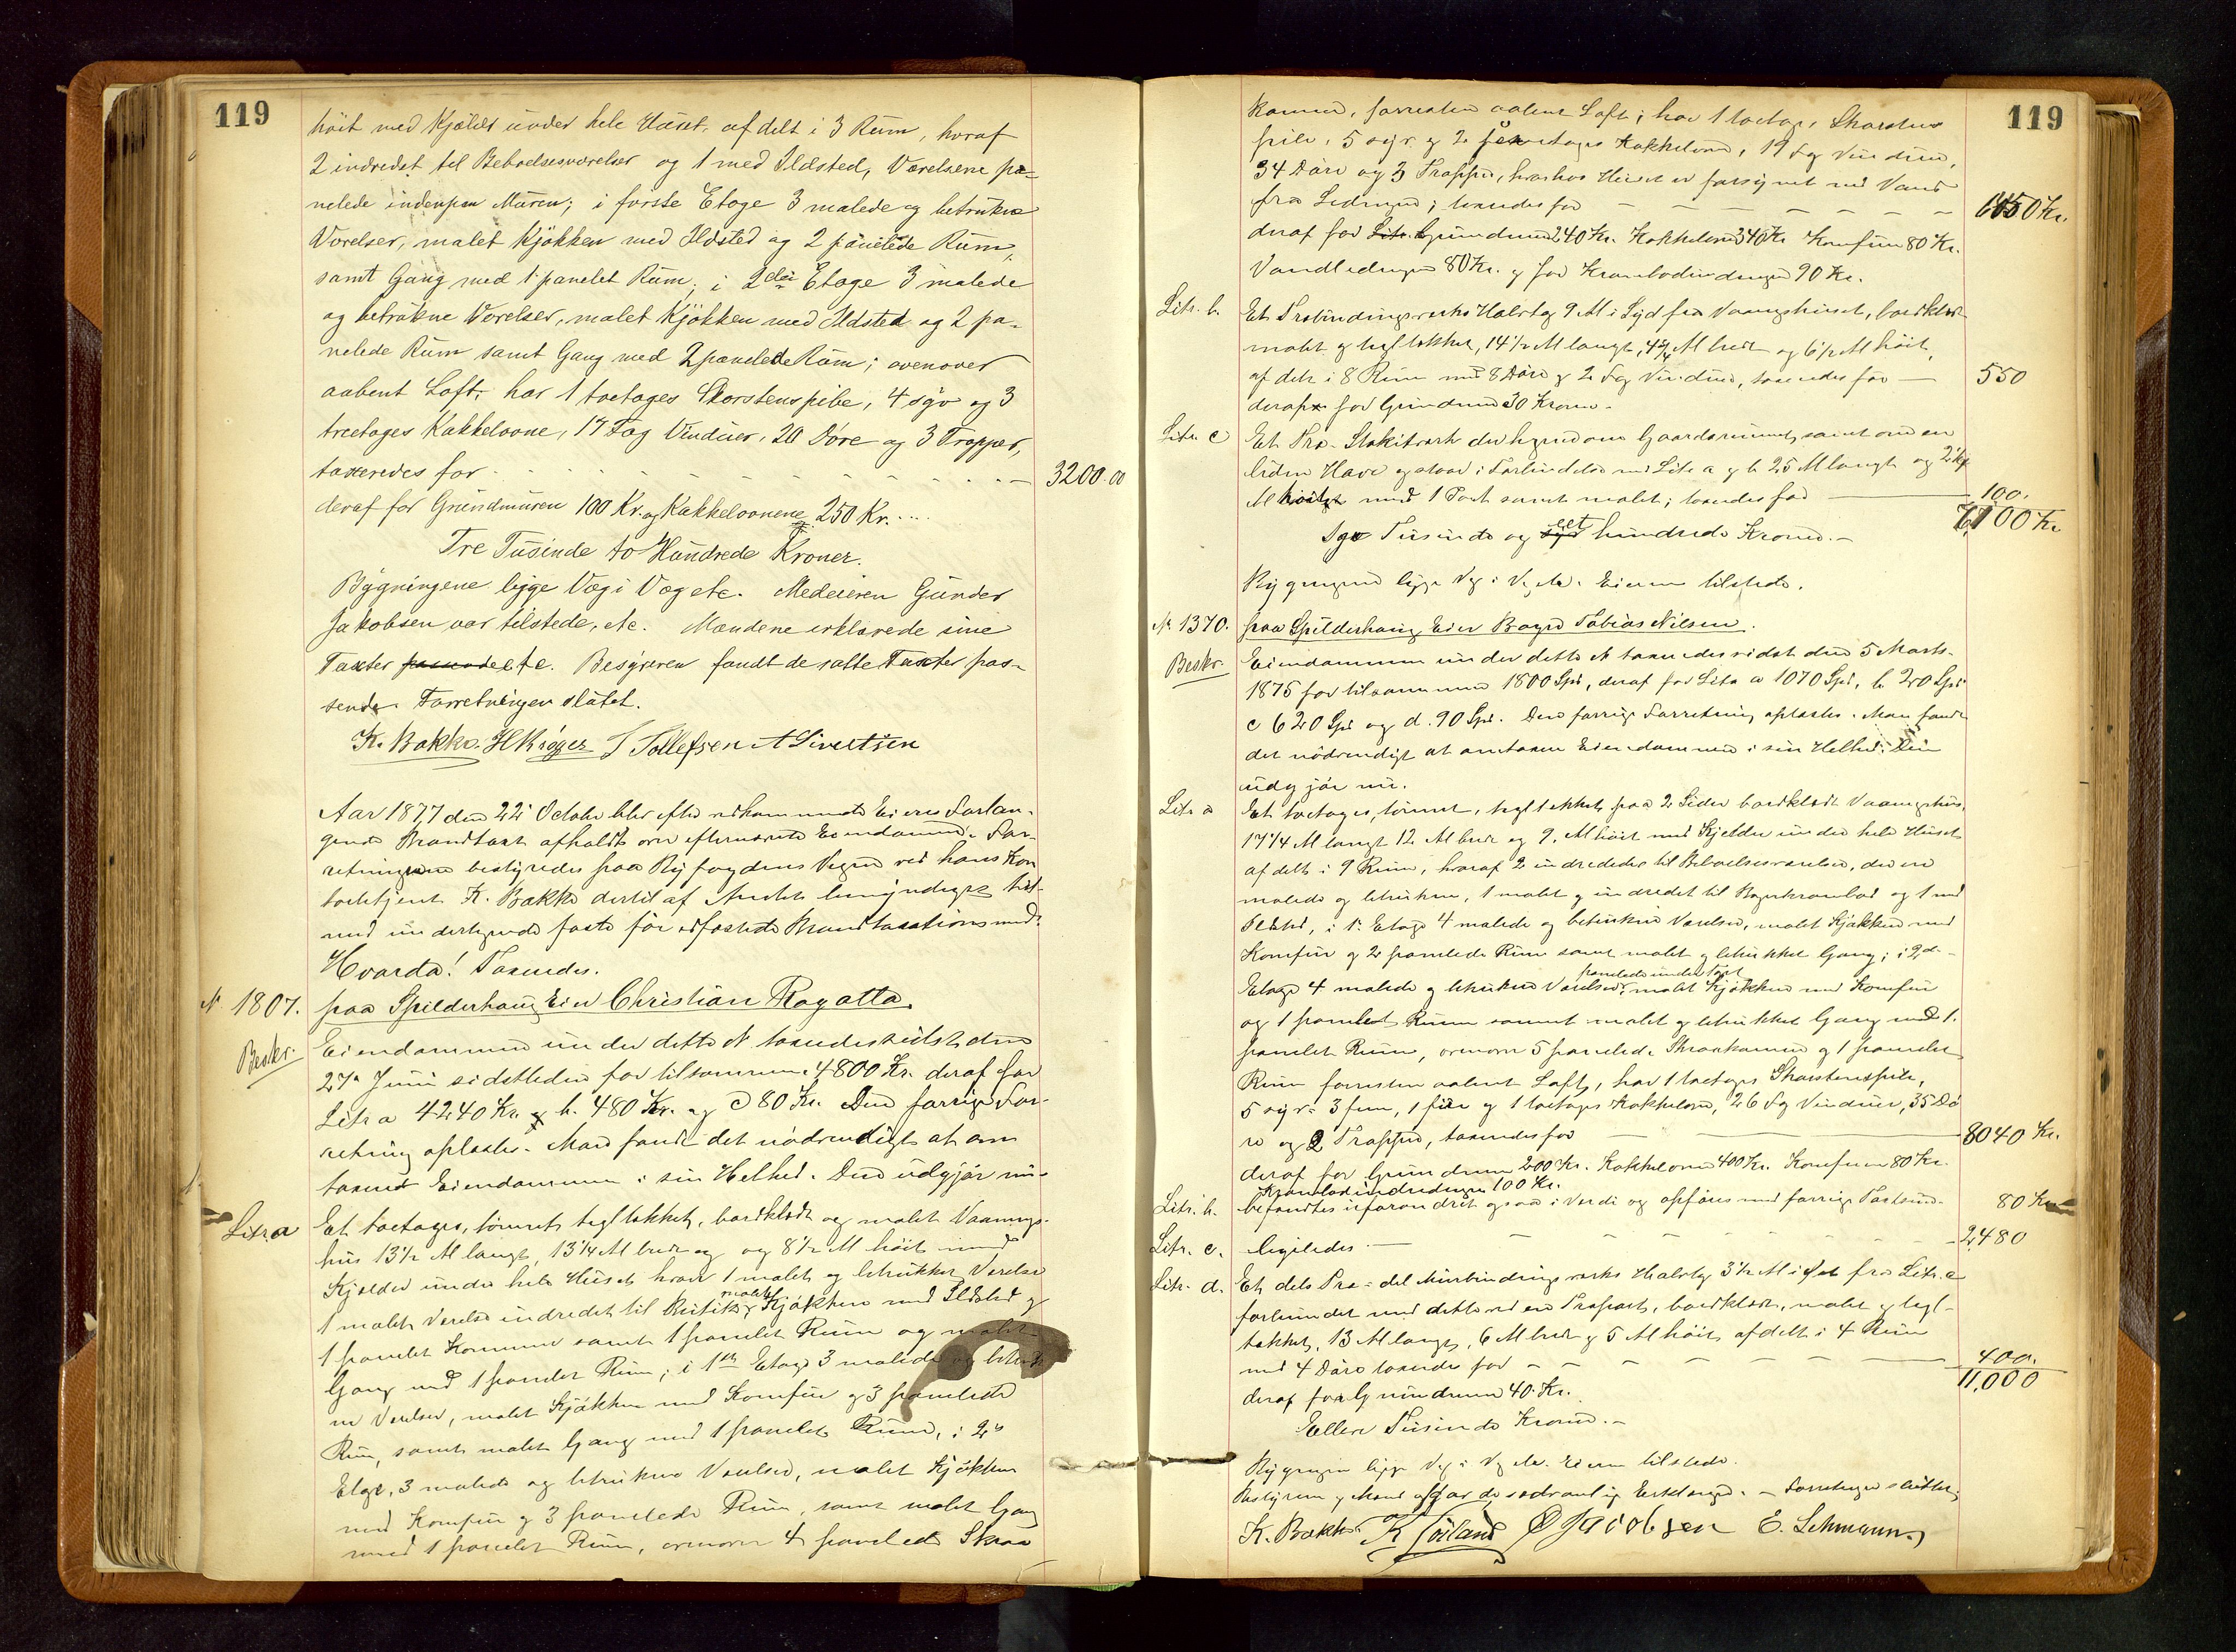 119
høit med Kjelder under hele Huset, afdelt i 3 Rum, hvoraf
2 indredet til Beboelsesværelser og 1 med Ildsted, Værelserne pa-
nelede indenpaa Muren; i første Etage 3 malede og betrukne
Værelser, malet Kjøkken med Ildsted og 2 panelede Rum,
samt Gang med 1 panelet Rum; i 2den Etage 3 malede
og betrukne Værelser, malet Kjøkken med Ildsted og 2 pa-
nelede Rum samt Gang med 2 panelede Rum; ovenover
aabent Loft; har 1 toetages Skorstenspibe, 4 syv og 3
treetages Kakkelovne, 17 Fag Vinduer, 20 Døre og 3 Trapper,
taxeredes for 3200.00
deraf for Grundmuren 100 Kr. og Kakkelovnene 250 Kr.
Tre Tusinde to Hundrede Kroner.
Bygningene ligge Væg i Væg etc. Medeieren Gunder
Jakobsen var tilstede, etc. Mændene erklærede sine
Taxter passende etc. Bestyreren fandt de satte Taxter pas-
sende. Forretningen sluttet.
K. Bakke. H Krøger T Tollefsen A Sivertsen
Aar 1877 den 22de October blev efter vedkommende Eieres Forlan-
gende Brandtaxt afholdt over efternævnte Eiendomme. For-
retningerne bestyredes paa Byfogdens Vegne ved hans Kon-
torbetjent K. Bakke dertil af Amtet bemyndiget
med undertegnede faste før edfæstede Brandtaxationsmænd.
Hvorda! Taxeredes.
N 1807. paa Spilderhaug Eier Christian Rogatta.
Beskr. Eiendommen under dette N taxeredes sidst den
27de Juni sidstleden for tilsammen 4800 Kr. deraf for
Litr a 4240 Kr. og b. 480 Kr. og c 80 Kr. Den forrige For-
retning oplæstes. Man fandt det nødvendigt at om
taxere Eiendommen i sin Helhed. Den udgjør nu-
Litr. a Et toetages, tømret, tegltækket, bordklædt og malet Vaanings-
hus 13 1/2 Al langt, 13 1/4 Al bredt og og 8 1/2 Al høit med
Kjelder under hele Huset hvori 1 malet og betrukket Værelse
1 malet Værelse indredet til Butik, malet Kjøkken med Ildsted og
1 panelet Kammer samt 1 panelet Rum og malet
Gang med 1 panelet Rum; i 1ste Etage 3 malede og betruk-
ne Værelser, malet Kjøkken med Komfur og 3 panelede
Rum, samt malet Gang med 1 panelet Rum, i 2den
Etage, 3 malede og betrukne Værelser, malet Kjøkken
med Komfur og 3 panelede Rum, samt malet Gang
med 1 panelet Rum, ovenover 4 panelede Skraa
119
kammer, forresten aabent Loft; har 1 toetages Skorstens
pibe, 5 syv og 2 femetages Kakkelovne, 19 Fag Vinduer,
34 Døre og 3 Trapper, hvorhos Huset er forsynet med Vand
fra Ledningen; taxeredes for 6450 Kr.
deraf for Litr. Grundmuren 240 Kr. Kakkelovne 340 Kr Komfur 80 Kr.
Vandledningen 80 Kr. og for Krambodindredningen 90 Kr.
Litr. b. Et Træbindingsværks Halvtag 9 Al i Syd fra Vaaningshuset, bordklædt
malet og tegltækket, 14 1/2 Al langt, 4 3/4 Al bredt og 6 1/2 Al høit,
afdelt i 8 Rum med 8 Døre og 2 Fag Vinduer, taxeredes for 550
deraf for Grundmuren 30 Kroner.
Litr. c Et Træ-Stakitværk der hegner om Gaardsrummet, samt om en
liden Have og staar i Forbindelse med Litr a og b 25 Al langt og 2 1/2
Al høit med 1 Port samt malet; taxeredes for 100.
7,100 Kr
Syv Tusinde og syv et hundrede Kroner.
Bygningerne ligge Væg i Væg etc. Eieren tilstede.
N. 1370. paa Spilderhaug Eier Bager Tobias Nilsen.
Beskr. Eiendommen under dette N taxeredes sidst den 5 Marts
1875 for tilsammen 1800 Spd, deraf for Litr a 1070 Spd, b 20 Spd
c 620 Spd og d. 90 Spd. Den forrige Forretning oplæstes. Man fandt
det nødvendigt at omtaxere Eiendommen i sin Helhed. Den
udgjør nu.
Litr a Et toetages, tømret, tegltækket, paa 2 Sider bordklædt Vaaningshus,
17 1/4 Al langt 12 Al bredt og 9. Al høit med Kjelder under hele Huset
afdelt i 9 Rum, hvoraf 2 indredede til Beboelsesværelser, den ene
malede og betrukne, 1 malet og indredet til Bagerkrambod og 1 med
Ildsted, i 1ste Etage 4 malede og betrukne Værelser, malet Kjøkken med
Komfur og 2 panelede Rum samt malet og betrukket Gang; i 2den
Etage 4 malede og betrukne Værelser, panelede under Taget malet Kjøkken med Komfur
og 1 panelet Rum samt malet og betrukket Gang med 1.
panelet Rum, ovenover 5 panelede Skraakammer og 1 panelet
Rum forresten aabent Loft, har 1 toetages Skorstenspibe,
5 syv- 3 fem, 1 fire og 1 toetages Kakkelovne, 26 Fag Vinduer, 35 Dø
re og 2 Trapper, taxeredes for 8040 Kr.
deraf for Grundmuren 200 Kr. Kakkelovne 400 Kr. Komfuren 80 Kr.
Krambodindredningen 100 Kr.
Litr. b. befandtes uforandret ogsaa i Værdi og opføres med forrige Taxtsum. 80 Kr
Litr. c. ligeledes 2,480
Litr. d. Et dels Træ- del Murbindingsværks Halvtag 3 1/2 Al i Øst fra Litr. a
forbundet med dette ved en Træport, bordklædt, malet og tegl-
tækket, 13 Al langt, 6 Al bredt og 5 Al høit, afdelt i 4 Rum
med 4 Døre taxeredes for 400.
11,000
deraf for Grundmuren 40 Kr.
Elleve Tusinde Kroner.
Bygningen ligge Væg i Væg etc. Eieren tilstede.
Bestyreren og Mænd afgav de sædvanlige Erklæringer. Forretningen sluttet.
K. Bakke. K Høiland O Jacobsen E. Lehmann.